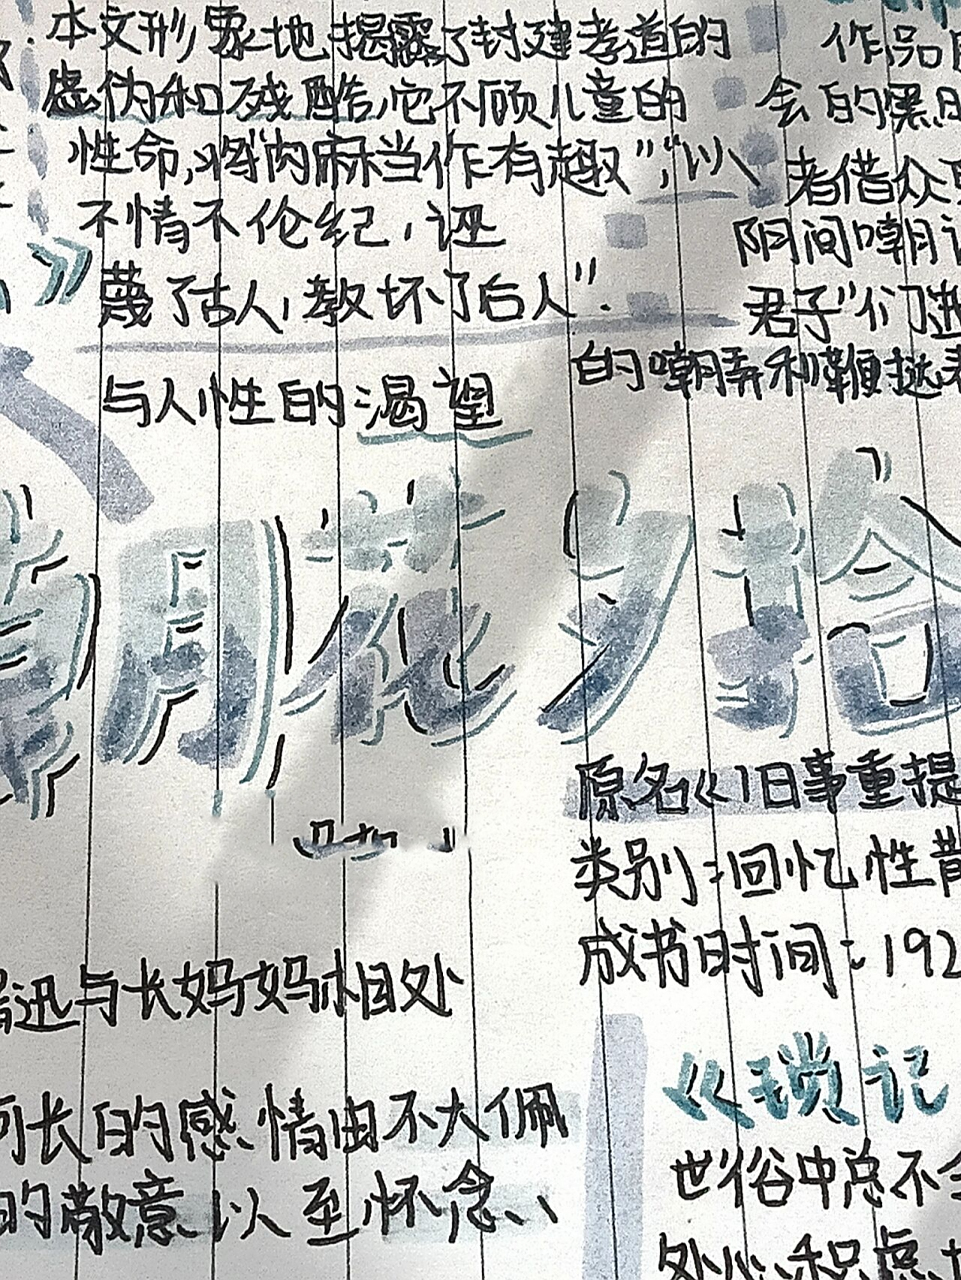 本文形象地揭露了封建孝道的
虚伪和残酷,它不顾儿童的
性命,将"肉麻当作有趣","以
不情不伦纪,诬
蔑了古人,教坏了后人".
作品
会的黑
者借众
阴间嘲
君子"们进
的嘲弄和鞭挞
与人性的渴望
朝花夕拾
原名《旧事重提
类别:回忆性散
成书时间:192
迅与长妈妈相处
长的感情由不大佩
的敬意以至怀念、
《琐记
世俗中总不
处心积虑